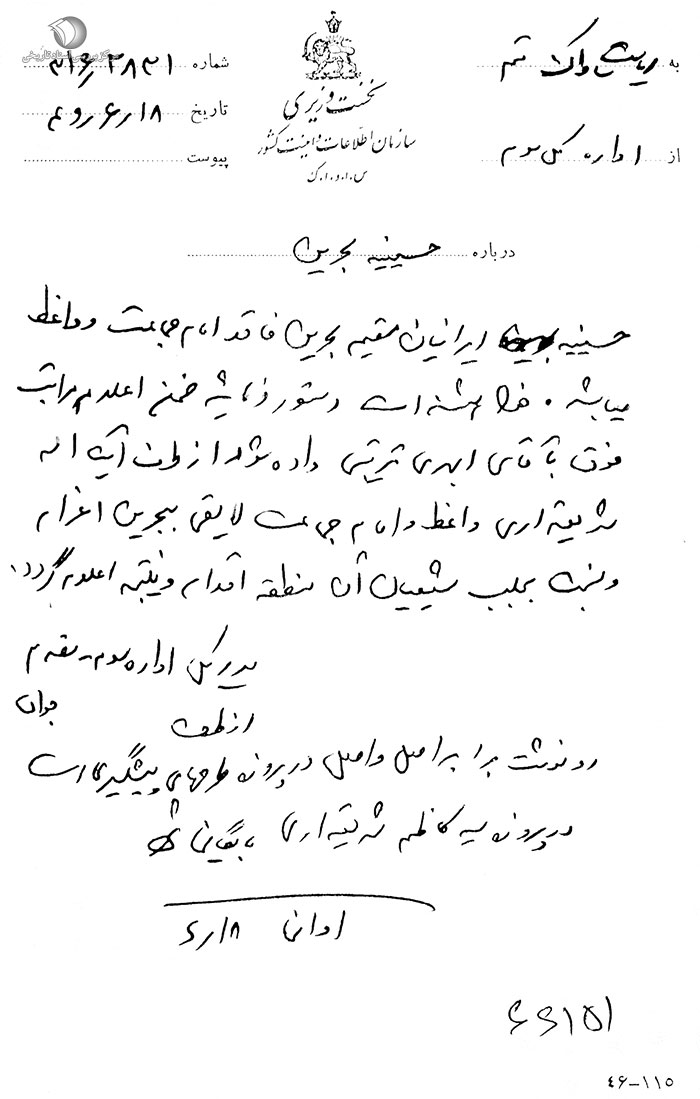 به ریاست ساواک قم
از اداره کل سوم
نخست وزیری
سازمان اطلاعات و امنیت کشور
س.ا.و.ا.ک
شماره ۳۱۶/۲۸۳۱
تاریخ ۱۸/۶/
پیوست
درباره حسینیه بحرین
حسینیه ایرانیان مقیم بحرین فاقد امام جماعت و واعظ
میباشد. خواهشمند است دستور فرمائید ضمن اعلام مراتب
فوق به آقای داده شود از طرف آیت اله
شریعتمداری واعظ و امام جماعت لایقی ببحرین اعزام
و نسبت بجلب شیعیان آن منطقه اقدام و نتیجه اعلام گردد.
مدیر کل اداره سوم - مقدم
از طرف
رونوشت برابر اصل و اصل در پرونده طرحهای پیشگیری است
در پرونده سید کاظم شریعتمداری بایگانی شود
۱۸/۶
۴۶-۱۱۵